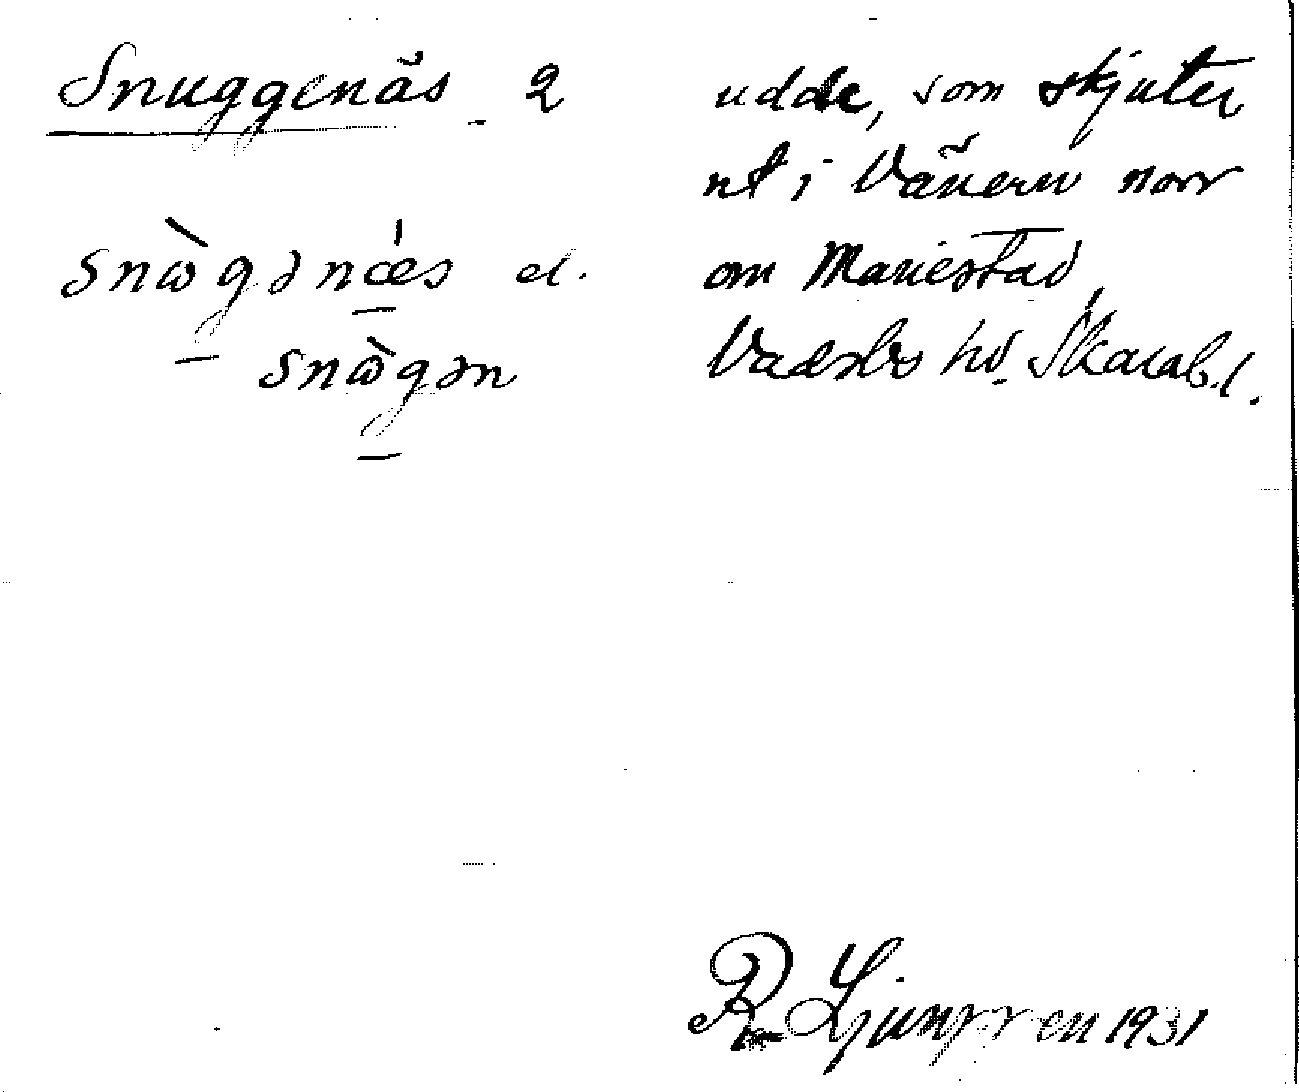 Snuggenäs 2
snὼgənǽs el.
snὼgən
udde, som skjuter
ut i Vänern norr
om Mariestad
Vadsbo hd. Skarab.l.
R. Ljunggren 1931